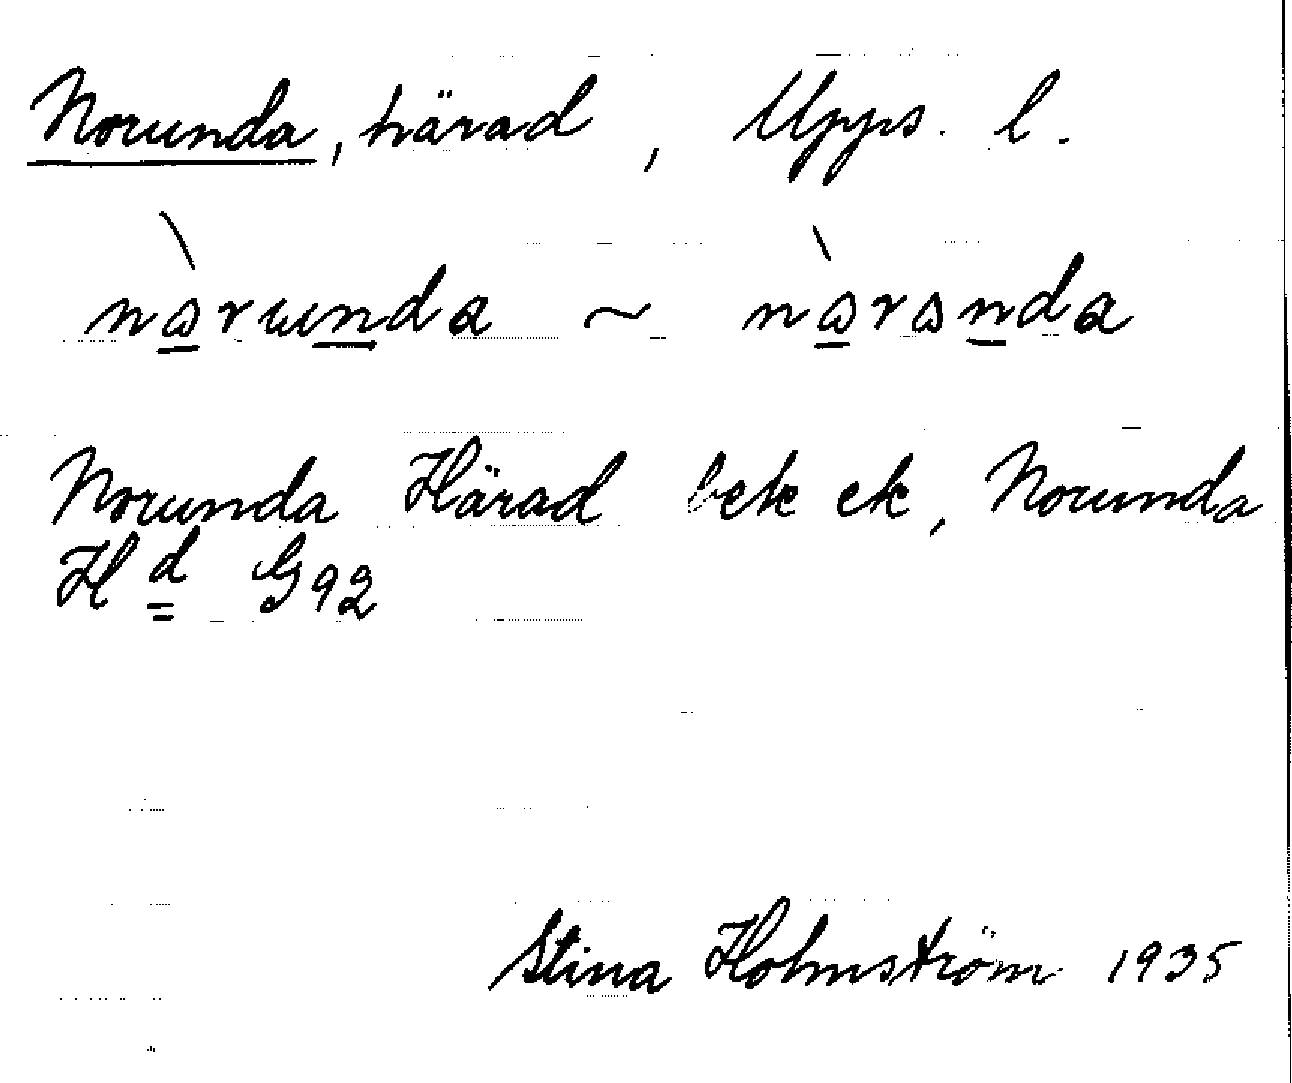 Norunda, härad, Upps. l.
nòrunda ~ nòrånda
Norunda Härad bek ek, Norunda
Hd G92
Stina Holmström 1935